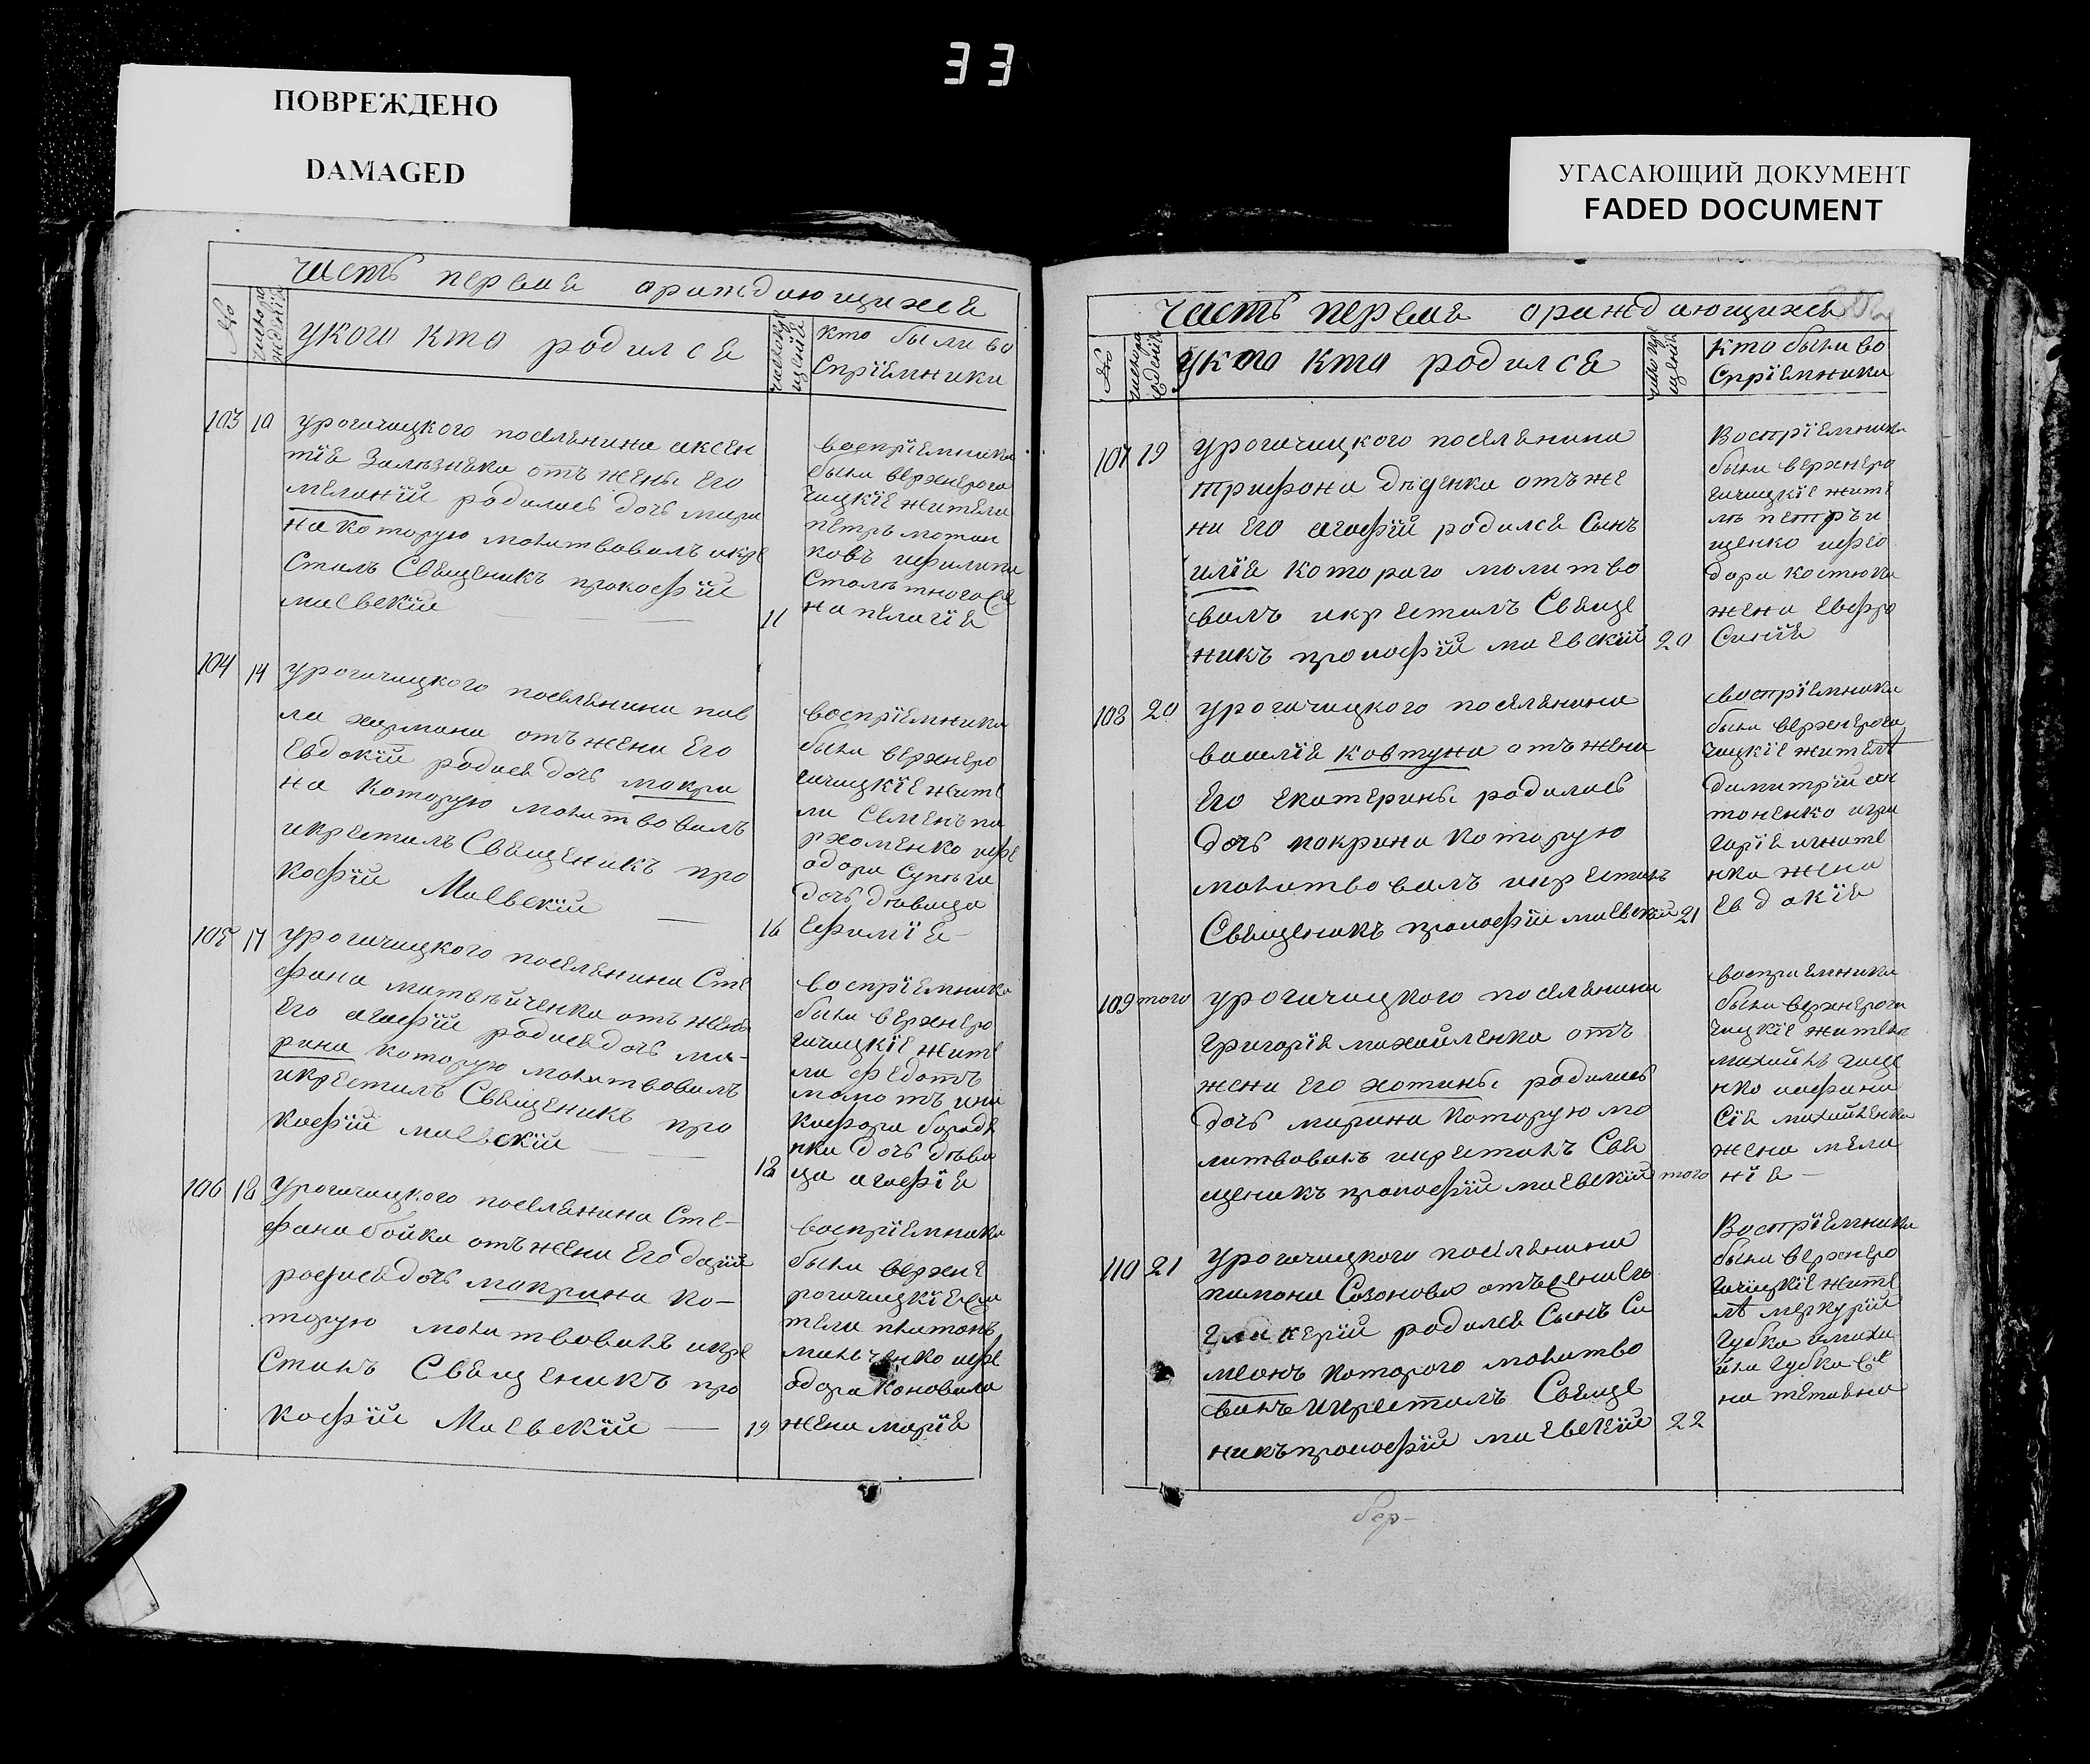 33
ПОВРЕЖДЕНО
DAMAGED
УГАСАЮЩИЙ ДОКУМЕНТ
FADED DOCUMENT
часть первая ораждающихся
№
укого кто родился
кто были во
спріемники
103 10
урогачицкого поселянина аксен
тїя Залѣзняка отъ жены его
меланїи родилась дочь мари
на которую молитвовалъ икре
стилъ Священикъ прокофїй
маевскїй
11
воспрїемники
были верхнерога
чицкїе жители
петръ
ковъ ифилипа
на пелагїя
104 14
урогачицкого поселянина пав
ла хармана отъ жени его
Евдокїи родися дочь макри
на которую молитвовалъ
икрестилъ Священикъ про
кофїй Маевскїй
16
воспрїемники
были верхнеро
гачицкїе жите
ли Семенъ па
рхоменко ифе
одора Супрыга
дочь дѣвица
Ефимїя
105 17
урогачицкого поселянина Сте
фана матвѣйченка отъ жены
Его агафїи родися дочь ма-
рина которую молитвовалъ
икрестилъ Священикъ про
кофїй маевскїй
18
воспрїемники
были верхнеро
гачицкїе жите
ли федотъ
мамотъ ини
кифора
нка дочь дѣви
ца агафїя
106 18
Урогачицкого поселянина Сте-
фана бойка отъ жени Его
родися дочь макрина ко-
торую молитвовалъ икре
стилъ Священикъ про
кофїй Маевскїй
19
воспрїемники
были верхне
рогачицкїе жи
тели платонъ
ифе
одора коновала
жена марїя
часть первая ораждающихся
№
укого кто родился
кто были во
спрїемники
107 19
урогачицкого поселянина
трифона дѣденка отъ же
ни его агафїи родился Сынъ
илїя которого молитво
валъ икрестилъ Священ
никъ прокофїй маевскїй
20
Воспрїемники
были верхнеро
гачицкїе жите
ли петръ и
щенко ифео
дора костюка
жена Евфро
Синїя
108 20
урогачицкого поселянина
василїя ковтуна отъ жени
Его екатерины родилась
дочь макрина которую
молитвовалъ икрестилъ
Священикъ прокофїй маевскїй
21
воспрїемники
были верхнерога
чицкїе жители
димитрїй ан
тоненко игри
горїя игнате
нка жена
Евдокїя
109 того
урогачицкого поселянина
григорїя михайленка отъ
жени его хотины родилась
дочь марина которую мо
литвовалъ икрестилъ Свя
щеникъ прокофїй маевскїй
того
воспрїемники
были верхнерога
чицкїе жители
михайлъ
нко иафана
сїя михайленка
жена мела
нїя
110 21
урогачицкого поселянина
пимона Созонова
гликерїи родился Сынъ Си
меонъ которого молитво
валъ икрестилъ Свяще
никъ прокофїй маевскїй
22
Воспрїемники
были верхнеро
гачицкїе жите
ли меркурїй
губка имиха
йла губки
на татїяна